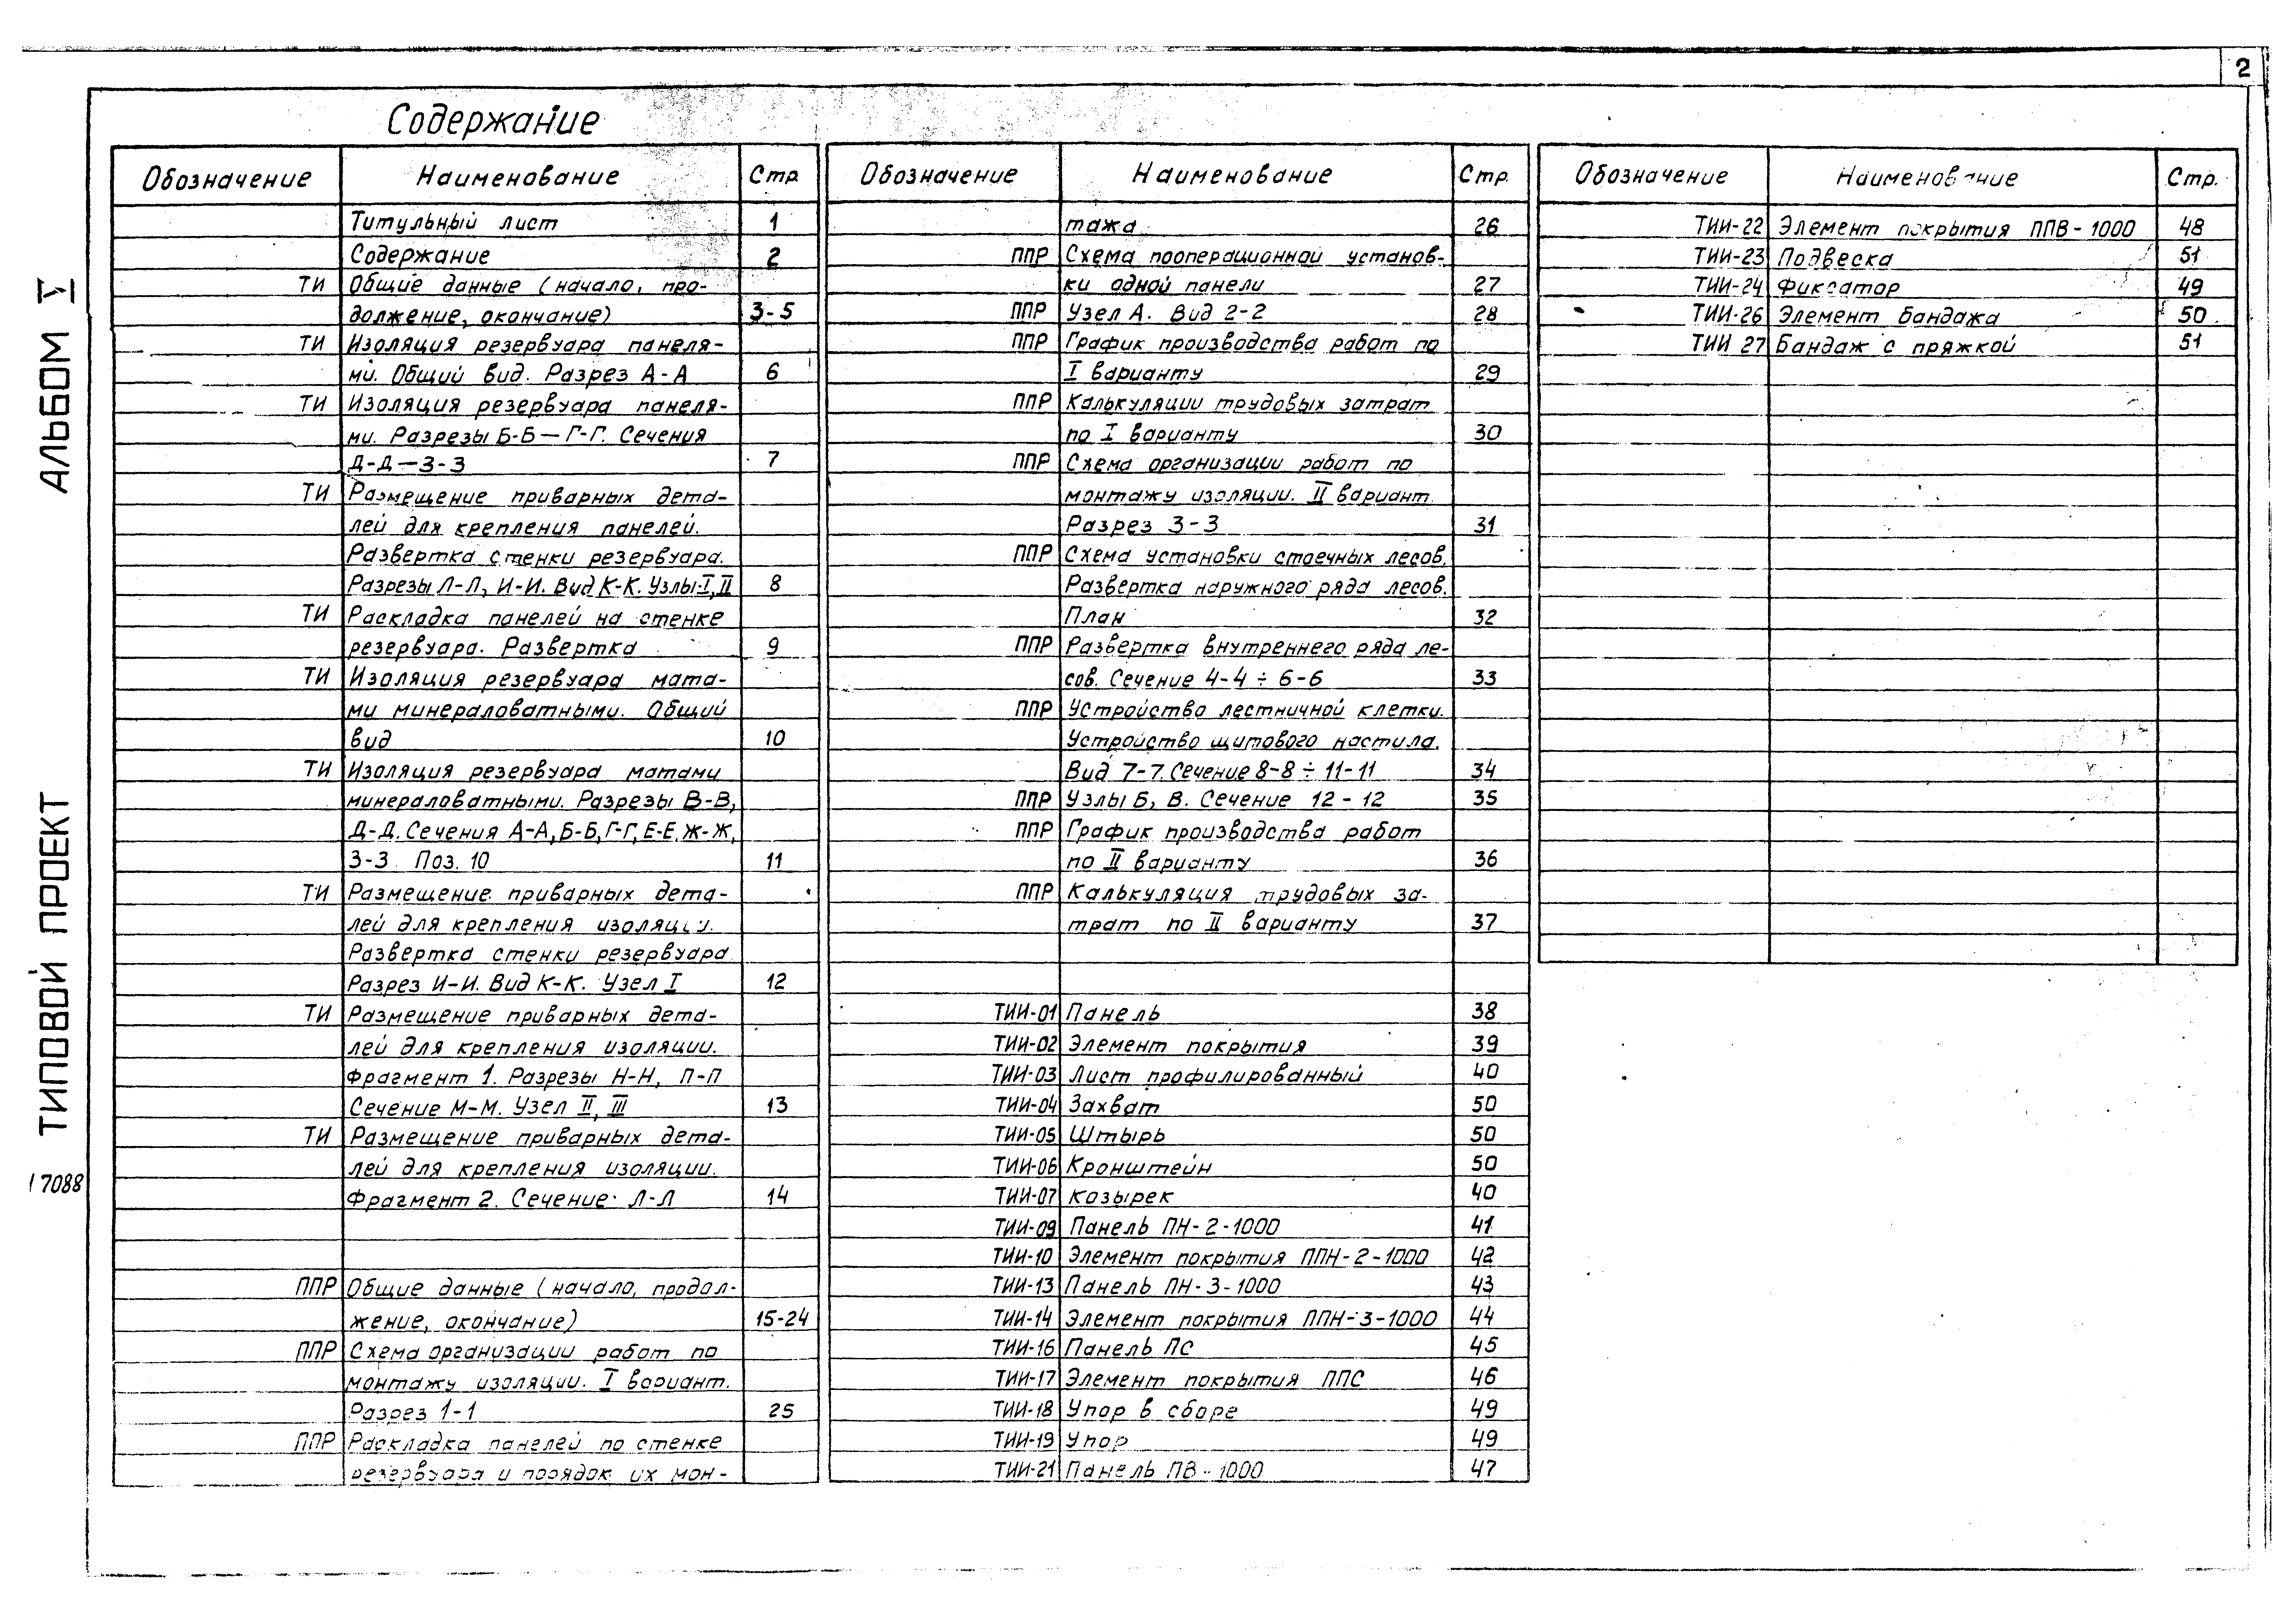 2
АЛЬБОМ V
ТИПОВОЙ ПРОЕКТ
17088
Содержание
Обозначение Наименование Стр
Титульный лист 1
Содержание 2
ТИ Общие данные (начало, про-
должение, окончание) 3-5
ТИ Изоляция резервуара панеля-
ми. Общий вид. Разрез А-А 6
ТИ Изоляция резервуара панеля-
ми. Разрезы Б-Б — Г-Г. Сечения
Д-Д — З-З 7
ТИ Размещение приварных дета-
лей для крепления панелей.
Развертка стенки резервуара.
Разрезы Л-Л, И-И. Вид К-К. Узлы I, II 8
ТИ Раскладка панелей на стенке
резервуара. Развертка 9
ТИ Изоляция резервуара мата-
ми минераловатными. Общий
вид 10
ТИ Изоляция резервуара матами
минераловатными. Разрезы В-В,
Д-Д. Сечения А-А, Б-Б, Г-Г, Е-Е, Ж-Ж,
З-З Поз. 10 11
ТИ Размещение приварных дета-
лей для крепления изоляции.
Развертка стенки резервуара
Разрез И-И. Вид К-К. Узел I 12
ТИ Размещение приварных дета-
лей для крепления изоляции.
Фрагмент 1. Разрезы Н-Н, П-П
Сечение М-М. Узел II, III 13
ТИ Размещение приварных дета-
лей для крепления изоляции.
Фрагмент 2. Сечение Л-Л 14
ППР Общие данные (начало, продол-
жение, окончание) 15-24
ППР Схема организации работ по
монтажу изоляции. I вариант.
Разрез 1-1 25
ППР Раскладка панелей по стенке
резервуара и порядок их мон-
Обозначение Наименование Стр.
тажа 26
ППР Схема пооперационной установ-
ки одной панели 27
ППР Узел А. Вид 2-2 28
ППР График производства работ по
I варианту 29
ППР Калькуляции трудовых затрат
по I варианту 30
ППР Схема организации работ по
монтажу изоляции. II вариант
Разрез 3-3 31
ППР Схема установки стоечных лесов.
Развертка наружного ряда лесов.
План 32
ППР Развертка внутреннего ряда ле-
сов. Сечение 4-4 ÷ 6-6 33
ППР Устройство лестничной клетки.
Устройство щитового настила.
Вид 7-7. Сечение 8-8 ÷ 11-11 34
ППР Узлы Б, В. Сечение 12-12 35
ППР График производства работ
по II варианту 36
ППР Калькуляция трудовых за-
трат по II варианту 37
ТИИ-01 Панель 38
ТИИ-02 Элемент покрытия 39
ТИИ-03 Лист профилированный 40
ТИИ-04 Захват 50
ТИИ-05 Штырь 50
ТИИ-06 Кронштейн 50
ТИИ-07 Козырек 40
ТИИ-09 Панель ПН-2-1000 41
ТИИ-10 Элемент покрытия ППН-2-1000 42
ТИИ-13 Панель ПН-3-1000 43
ТИИ-14 Элемент покрытия ППН-3-1000 44
ТИИ-16 Панель ПС 45
ТИИ-17 Элемент покрытия ППС 46
ТИИ-18 Упор в сборе 49
ТИИ-19 Упор 49
ТИИ-21 Панель ПВ-1000 47
Обозначение Наименование Стр.
ТИИ-22 Элемент покрытия ППВ-1000 48
ТИИ-23 Подвеска 51
ТИИ-24 Фиксатор 49
ТИИ-26 Элемент бандажа 50
ТИИ 27 Бандаж с пряжкой 51